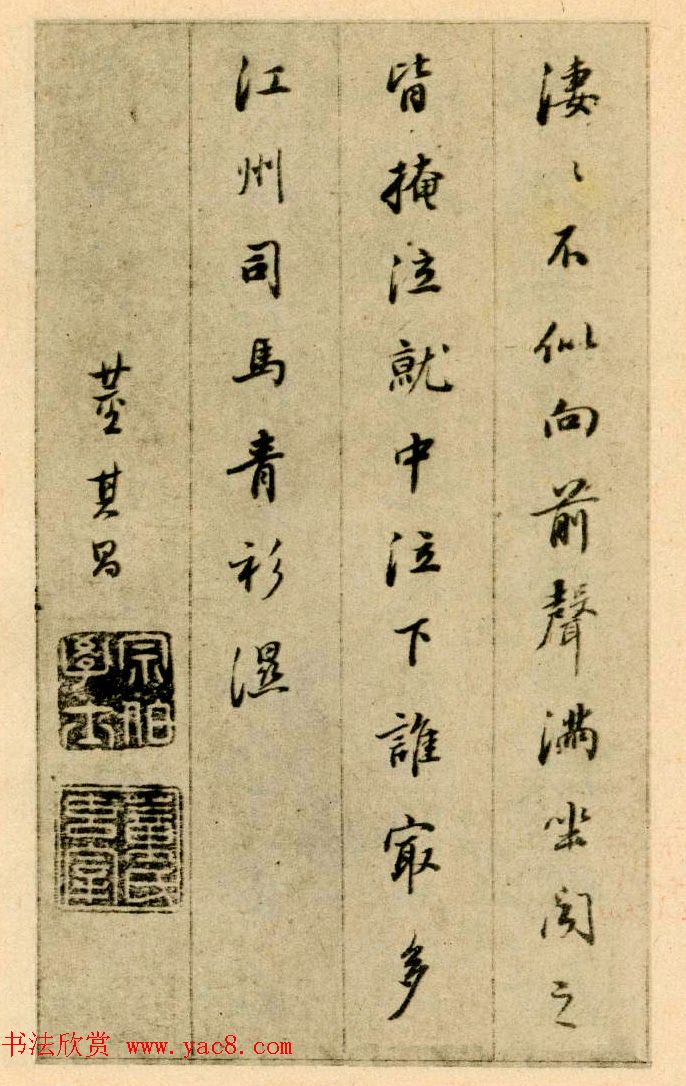 淒〻不似向前聲滿坐聞之
皆掩泣就中泣下誰㝡多
江州司馬青衫濕
董其昌
宗伯學士
董氏玄宰
书法欣赏 www.yac8.com